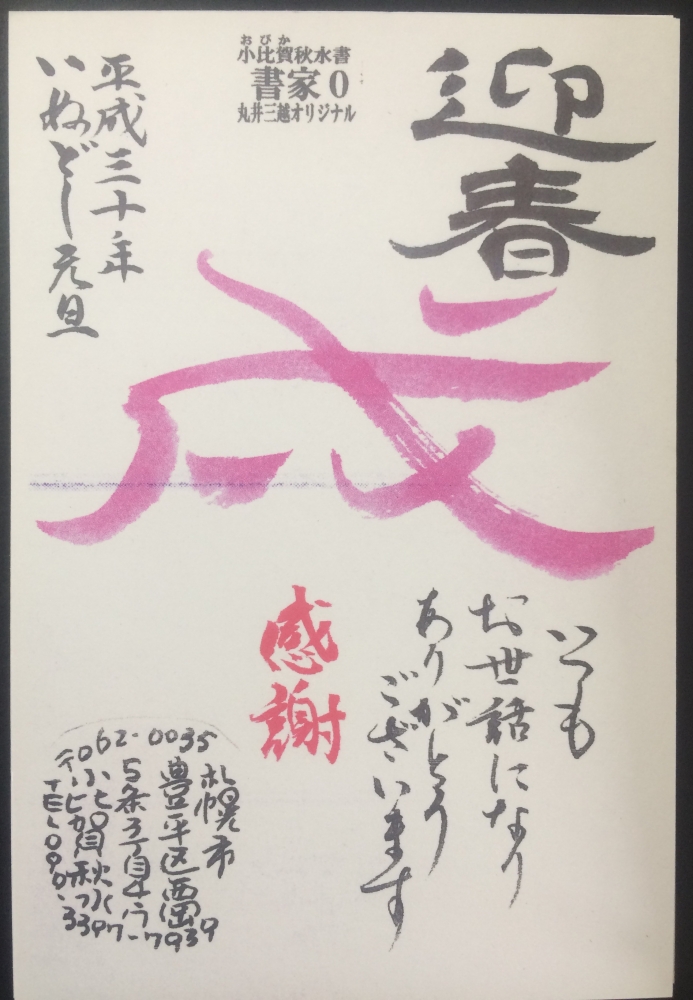 迎春
おびか
小比賀秋水書
書家0
丸井三越オリジナル
平成三十年
いぬどし元旦
戌
いつも
お世話になり
ありがとう
ございます
感謝
〒062-0035
札幌市
豊平区西岡
5条3丁目4-17-7
小比賀秋水